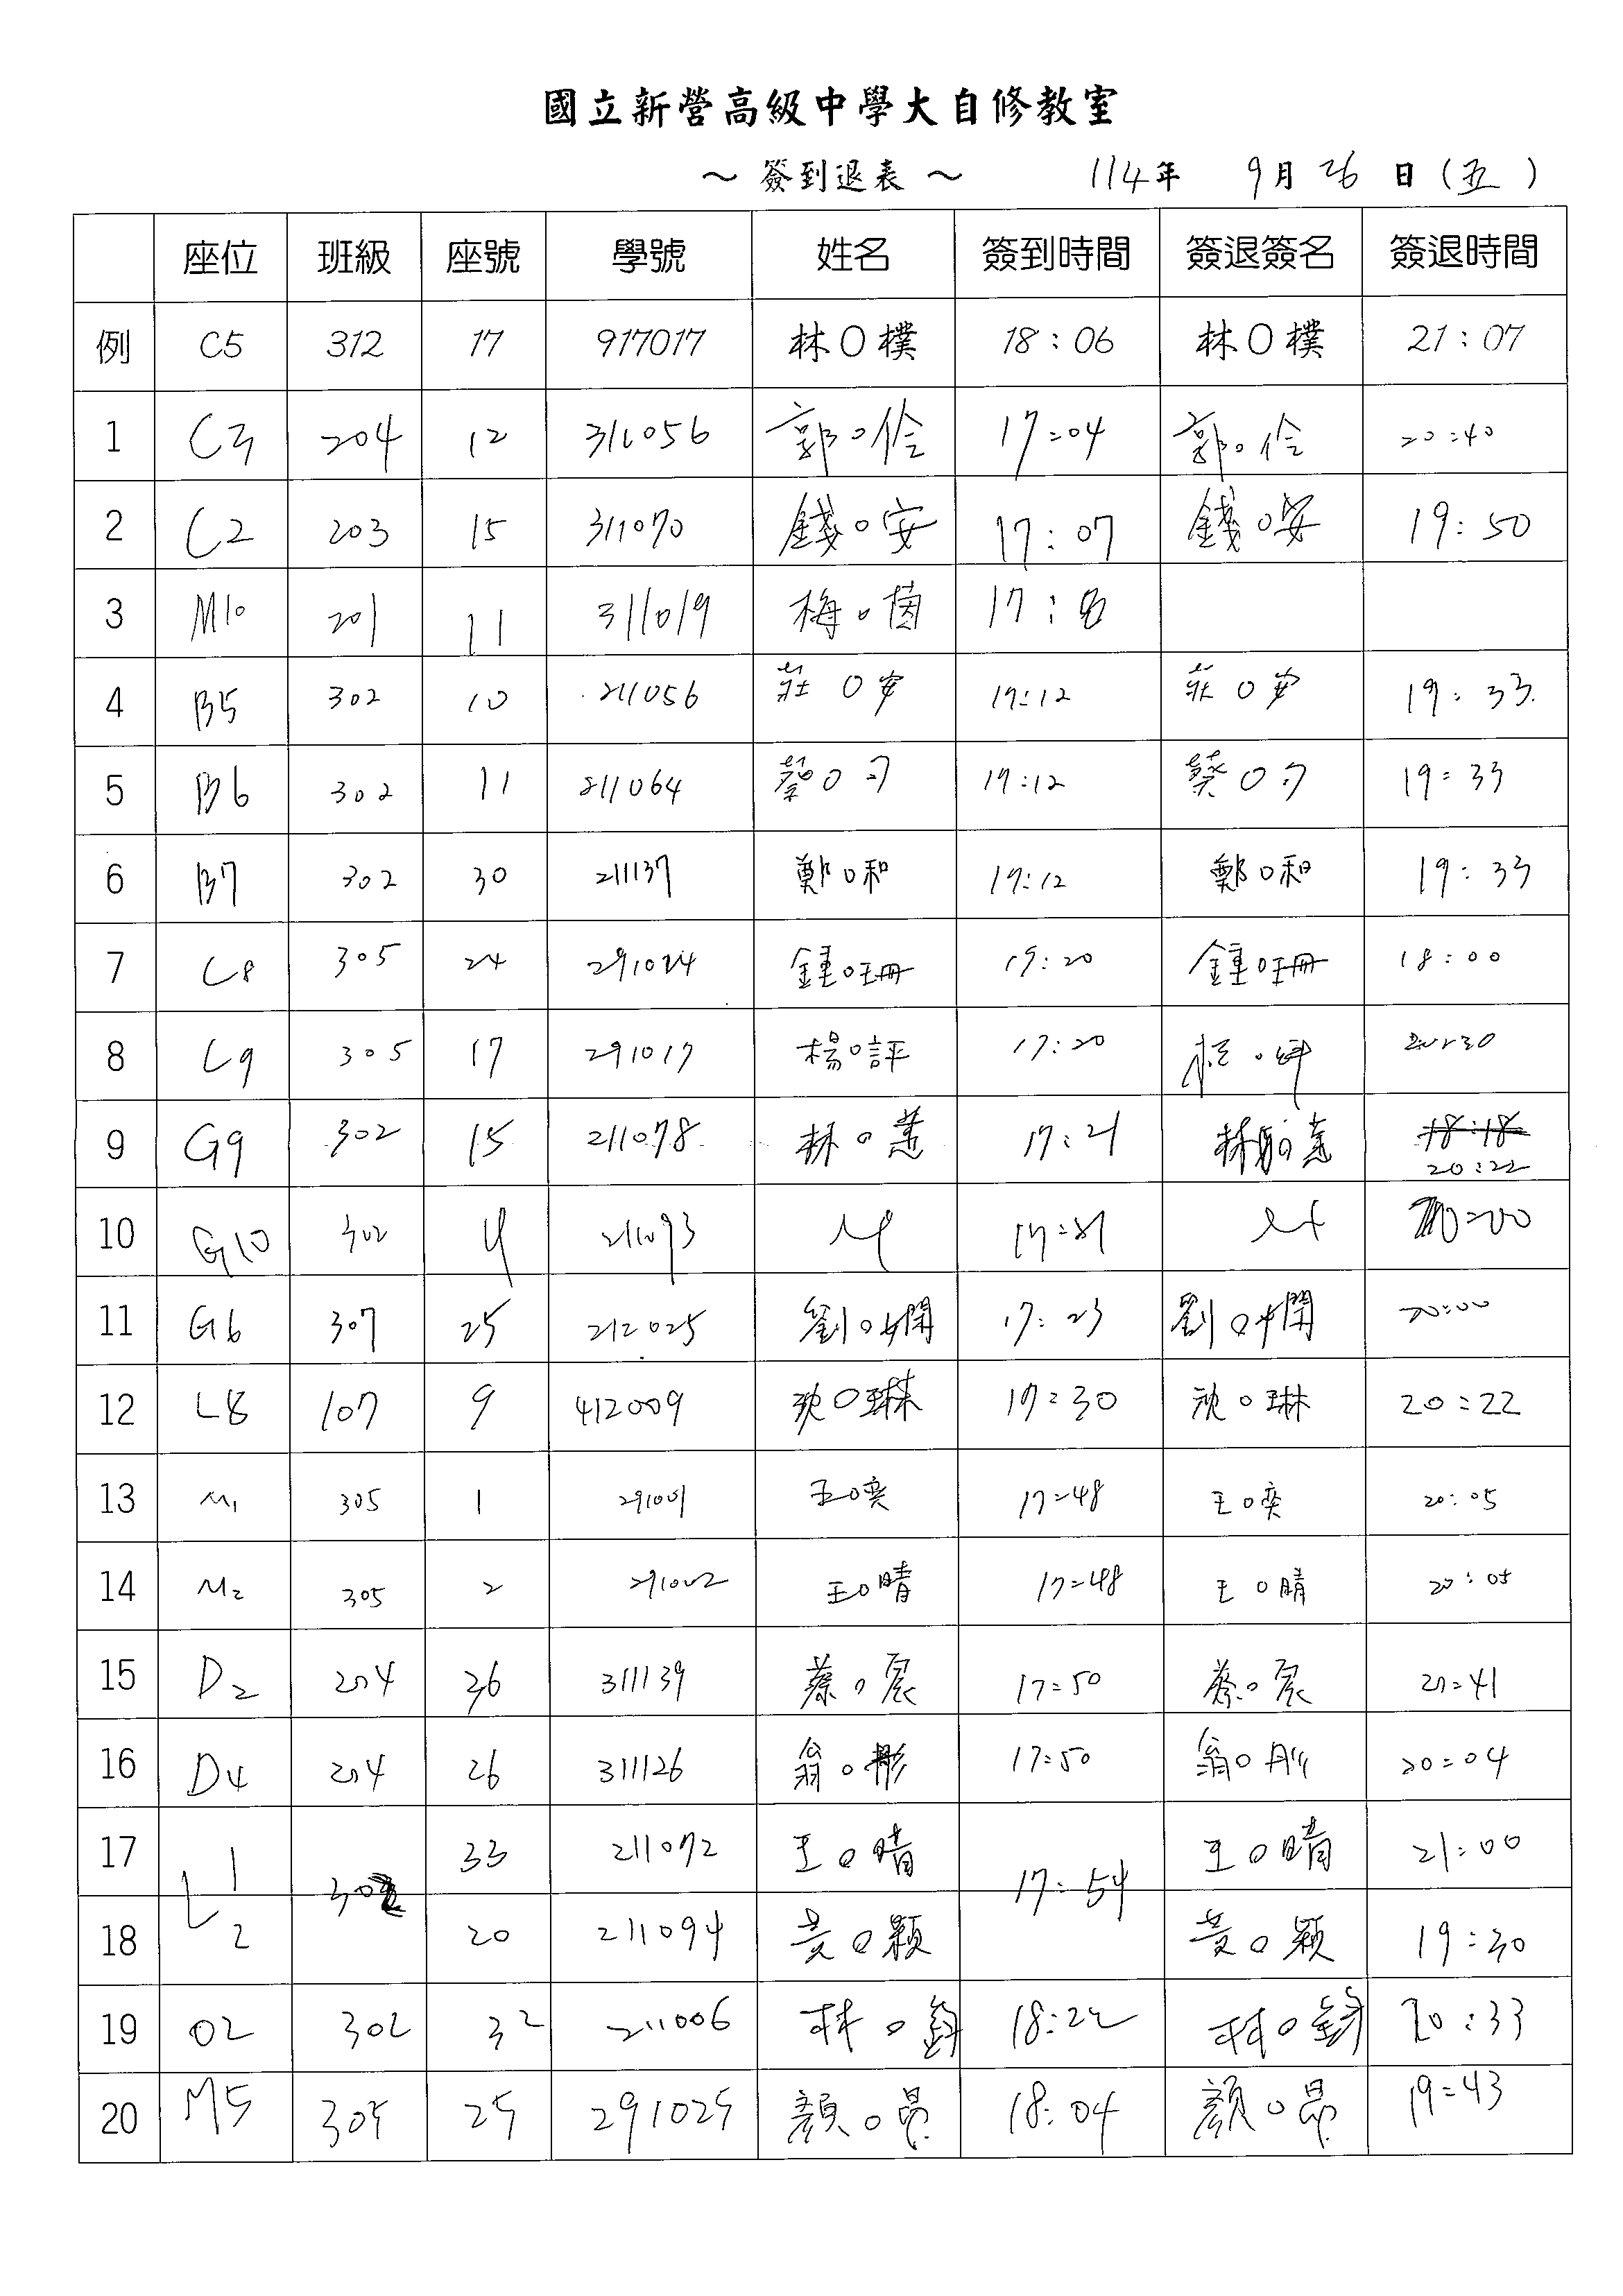 國立新營高級中學大自修教室
～ 簽到退表 ～ 114年 9月 26 日 (五)
座位 班級 座號 學號 姓名 簽到時間 簽退簽名 簽退時間
例 C5 312 17 917017 林O樸 18:06 林O樸 21:07
1 C3 204 12 311056 郭O伶 17:04 郭O伶 20:40
2 C2 203 15 311070 錢O安 17:07 錢O安 19:50
3 M10 201 11 311019 梅O茵 17:
4 B5 302 10 211056 莊O安 17:12 莊O安 19:33
5 B6 302 11 211064 蔡O 17:12 蔡O 19:33
6 B7 302 30 211137 鄭O和 17:12 鄭O和 19:33
7 C8 305 24 291024 鍾O珊 17:20 鍾O珊 18:00
8 C9 305 17 291017 楊O評 17:20
9 G9 302 15 211078 林O蕙 17:21 林O蕙 18:18
20:22
10 G10 302 211093 20:00
11 G6 307 25 212025 劉O嫻 17:23 劉O嫻 20:00
12 L8 107 9 412009 沈O琳 17:30 沈O琳 20:22
13 M1 305 1 291001 王O奕 17:48 王O奕 20:05
14 M2 305 2 291002 王O晴 17:48 王O晴 20:05
15 D2 204 36 311139 蔡O宸 17:50 蔡O宸 20:41
16 D4 204 26 311126 翁O彤 17:50 翁O彤 20:04
17 L1 302 33 211072 王O晴 17:54 王O晴 21:00
18 2 20 211094 黃O穎 黃O穎 19:30
19 O2 302 32 211006 林O鋒 18:22 林O鋒 20:33
20 M5 305 25 291025 顏O昂 18:04 顏O昂 19:43